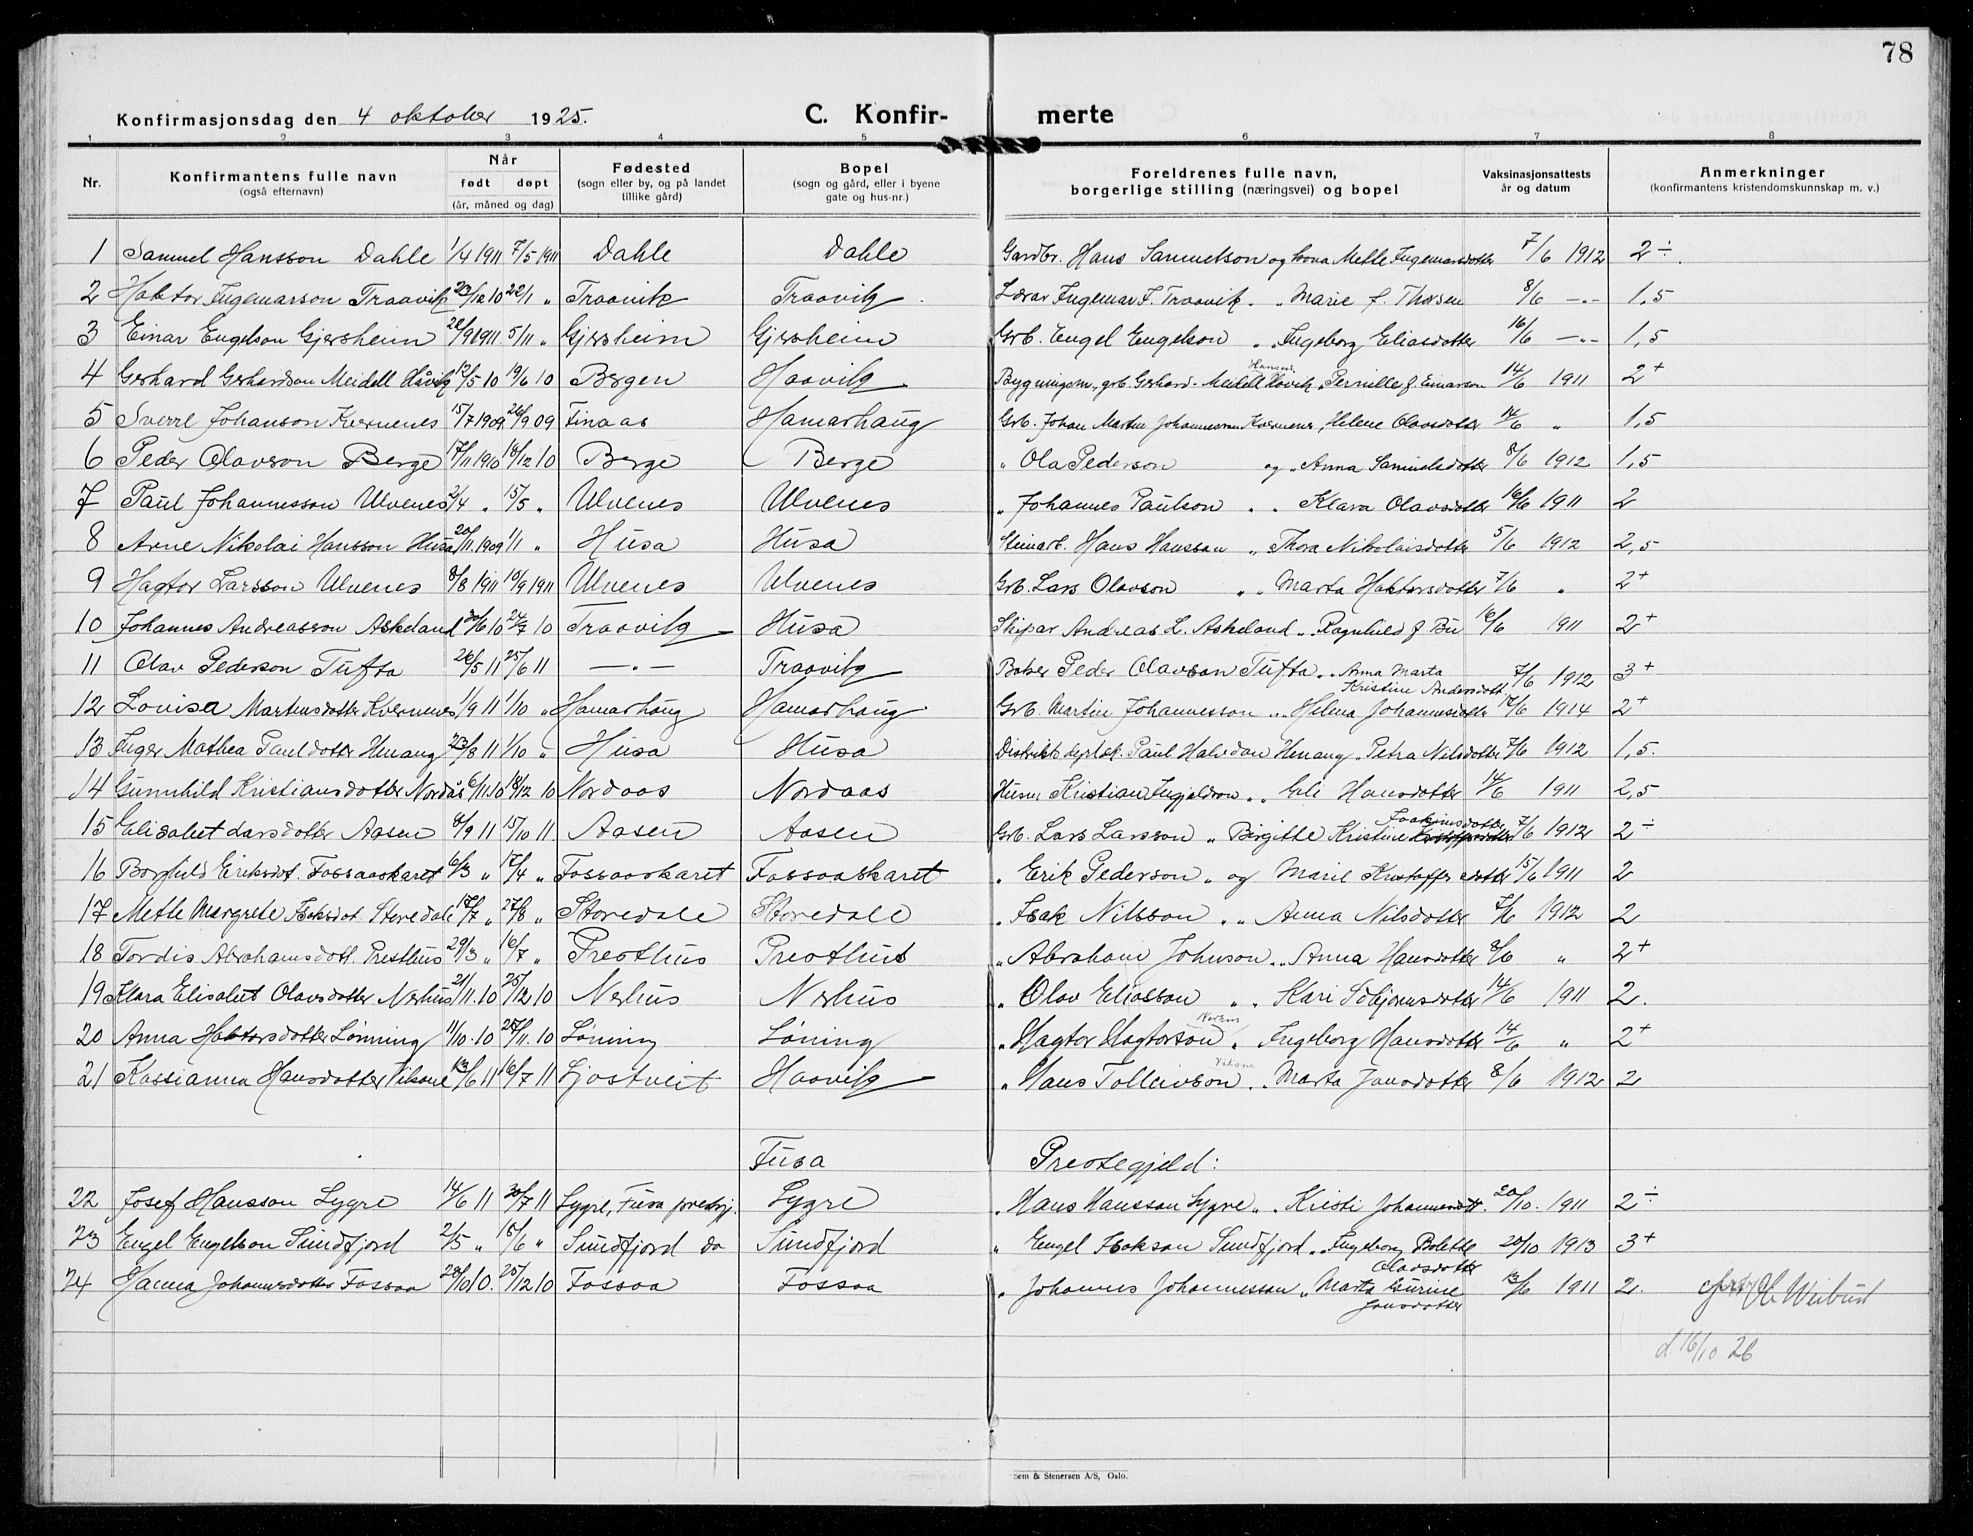 78
Konfirmasjonsdag den 4 oktober 1925.
C. Konfir- merte
1 2 3 4 5 6 7 8
Nr. Konfirmantens fulle navn (også efternavn) Når født døpt (år, måned og dag) Fødested (sogn eller by, og på landet tillike gård) Bopel (sogn og gård, eller i byene gate og hus-nr.) Foreldrenes fulle navn, borgerlige stilling (næringsvei) og bopel Vaksinasjonsattests år og datum Anmerkninger (konfirmantens kristendomskunnskap m. v.)
1 Samuel Hansson Dahle 1/4 1911 7/5 1911 Dahle Dahle Gardbr. Hans Samuelson og kona Mette Ingemarsdotter 7/6 1912 2÷
2 Haktor Ingemarson Traavik 23/12 10 22/1 " Traavik Traavik Lærar Ingemar J. Traavik " Marie f. Thorsen 8/6 —"— 1,5
3 Einar Engelson Gjersheim 2/9 1911 5/11 " Gjersheim Gjersheim Grb. Engel Engelson " " Ingeborg Eliasdotter 16/6 —"— 1,5
4 Gerhard Gerhardson Meidell Håvik 12/5 10 19/6 10 Bergen Haavik Bygningsm., grb. Gerhard Hansen Meidell Hovik, Pernille f. Einarson 14/6 1911 2+
5 Sverre Johanson Kvernenes 15/7 1909 26/9 09 Finaas Hamarhaug Grb. Johan Martin Johannesson Kvernenes, Helene Olavsdotter 14/6 " 1,5
6 Peder Olavson Berge 17/11 1910 18/12 10 Berge Berge " Ola Pederson og " Anna Samuelsdotter 8/6 1912 1,5
7 Paul Johannesson Ulvenes 2/4 " 15/5 " Ulvenes Ulvenes " Johannes Paulson " " Klara Olavsdotter 16/6 1911 2
8 Arne Nikolai Hansson Husa 20/11 1909 1/1 " Husa Husa Steinarb. Hans Hansson " Thora Nikolaisdotter 5/6 1912 2,5
9 Hagtor Larsson Ulvenes 8/8 1911 10/9 1911 Ulvenes Ulvenes Grb. Lars Olavson " " Marta Haktorsdotter 7/6 " 2+
10 Johannes Andreasson Askeland /6 10 24/7 10 Traavik Husa Skipar Andreas L. Askeland " " Ragnhild f. Bu 16/6 1911 2+
11 Olav Pederson Tufta 26/5 11 25/6 11 —"— Traavik Baker Peder Olavson Tufta " " Anna Marta Kristine Andersdott. 7/6 1912 3+
12 Lovisa Martinsdotter Kvernenes 1/9 11 1/10 " Hamarhaug Hamarhaug Grb. Martin Johannesson " " Helena Johannesdotter 17/6 1914 2+
13 Inger Mathea Pauldotter Henang 23/8 11 1/10 " Husa Husa Distrikts dyrlæk. Paul Halvdan Henang " Petra Nilsdotter 7/6 1912 1,5.
14 Gunnhild Kristiansdotter Nordås 6/11 10 18/12 10 Nordaas Nordaas Husm. Kristian Ingjeldson " " Eli Hansdotter 14/6 1911 2,5
15 Elisabet Larsdotter Aasen 8/9 11 15/10 11 Aasen Aasen Grb. Lars Larsson " Birgitte Kristine Joakimsdotter 7/6 1912 2÷
16 Borghild Eriksdot. Fossaaskaret 6/3 " 17/4 " Fossaaskaret Fossaaskaret " Erik Pederson " og Marie Kristoffersdotter 15/6 1911 2
17 Mette Margrete Isaksdot. Storedale 17/7 " 27/8 " Storedale Storedale " Isak Nilsson " " Anna Nilsdotter 7/6 1912 2
18 Tordis Abrahamsdott. Presthus 29/3 " 16/7 " Presthus Presthus " Abraham Johnson " " Anna Hansdotter 8/6 " 2+
19 Klara Elisabet Olavsdotter Nerhus 21/11 10 25/12 10 Nerhus Nerhus " Olav Eliasson " " Kari Torbjørnsdotter 14/6 1911 2.
20 Anna Haktorsdotter Lønning 11/10 10 25/11 10 Lønning Lønning " Hagtor Hagtorson Nerhus " Ingeborg Hansdotter 14/6 " 2+
21 Kassianna Hansdotter Vikane 13/6 11 16/7 11 Ljostveit Haavik " Hans Tolleivson Vikane " " Marta Jonsdotter 8/6 1912 2
Fusa Prestegjeld:
22 Josef Hansson Lygre 14/6 11 30/7 11 Lygre, Fusa prestgj. Lygre " Hans Hansson Lygre " " Kristi Johannesdott. 20/10 1911 2÷
23 Engel Engelson Sundfjord 2/5 " 18/6 " Sundfjord do Sundfjord " Engel Isakson Sundfjord " Ingeborg Bolette Olavsdotter 20/10 1913 3+
24 Hanna Johannesdotter Fossaa 28/10 10. 25/12 10 Fossaa Fossaa " Johannes Johannesson " Marta Gurine Jonsdotter 13/6 1911 2. Weibust
d. 16/10 26
Sem & Stenersen A/S, Oslo.